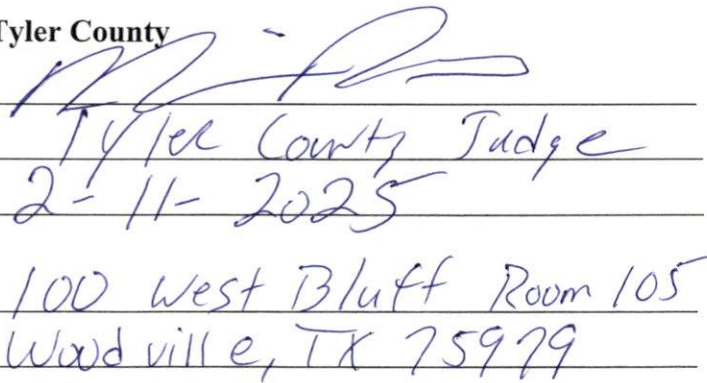 Tyler County
Tyler County Judge
2-11-2025
100 West Bluff Room 105
Woodville, TX 75979